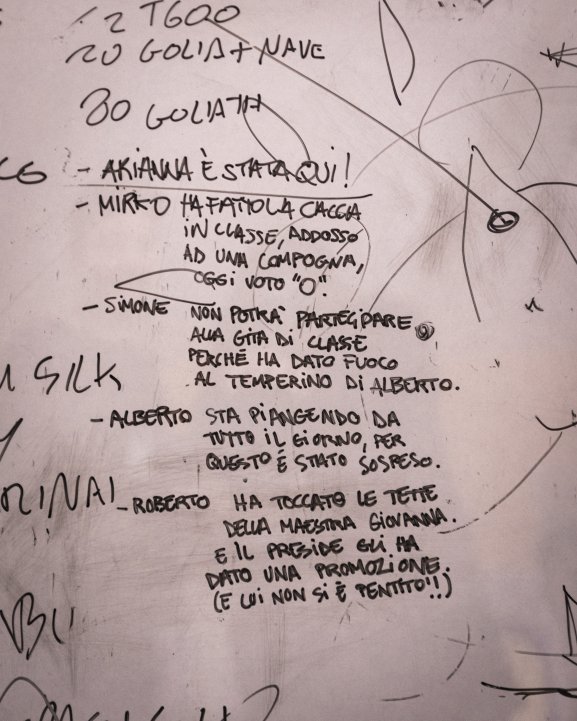 12 TGOO
20 GOLIA+NAVE
30 GOLIATH
- ARIANNA È STATA QUI!
- MIRKO HA FATTO LA CACCA
IN CLASSE, ADDOSSO
AD UNA COMPOGNA,
OGGI VOTO "0".
- SIMONE NON POTRA' PARTECIPARE
ALLA GITA DI CLASSE
PERCHÉ HA DATO FUOCO
AL TEMPERINO DI ALBERTO.
SILK
- ALBERTO STA PIANGENDO DA
TUTTO IL GIORNO, PER
QUESTO È STATO SOSPESO.
- ROBERTO HA TOCCATO LE TETTE
DELLA MAESTRA GIOVANNA.
E IL PRESIDE GLI HA
DATO UNA PROMOZIONE.
(E LUI NON SI È PENTITO!!)